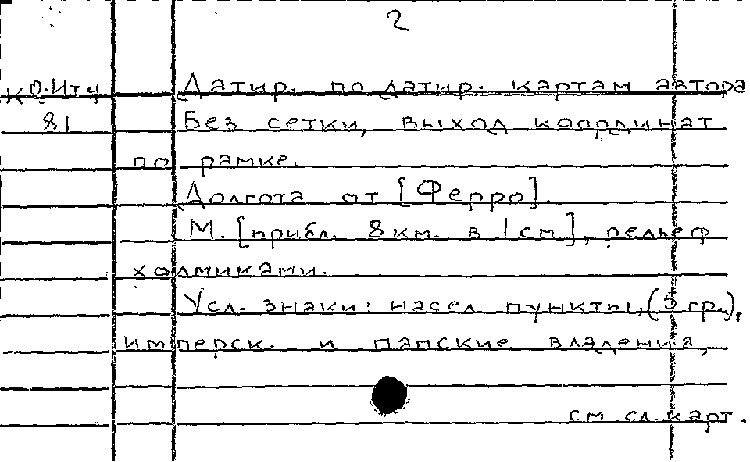 2
К О-Итч Датир. по датир. картам автора
81 Без сетки, выход координат
по рамке.
Долгота от [Ферро].
М. [прибл. 8 км. в 1 см], рельеф
холмиками.
Усл. знаки: насел пункты, (5 гр.),
имперск. и папские владения,
см сл. карт.